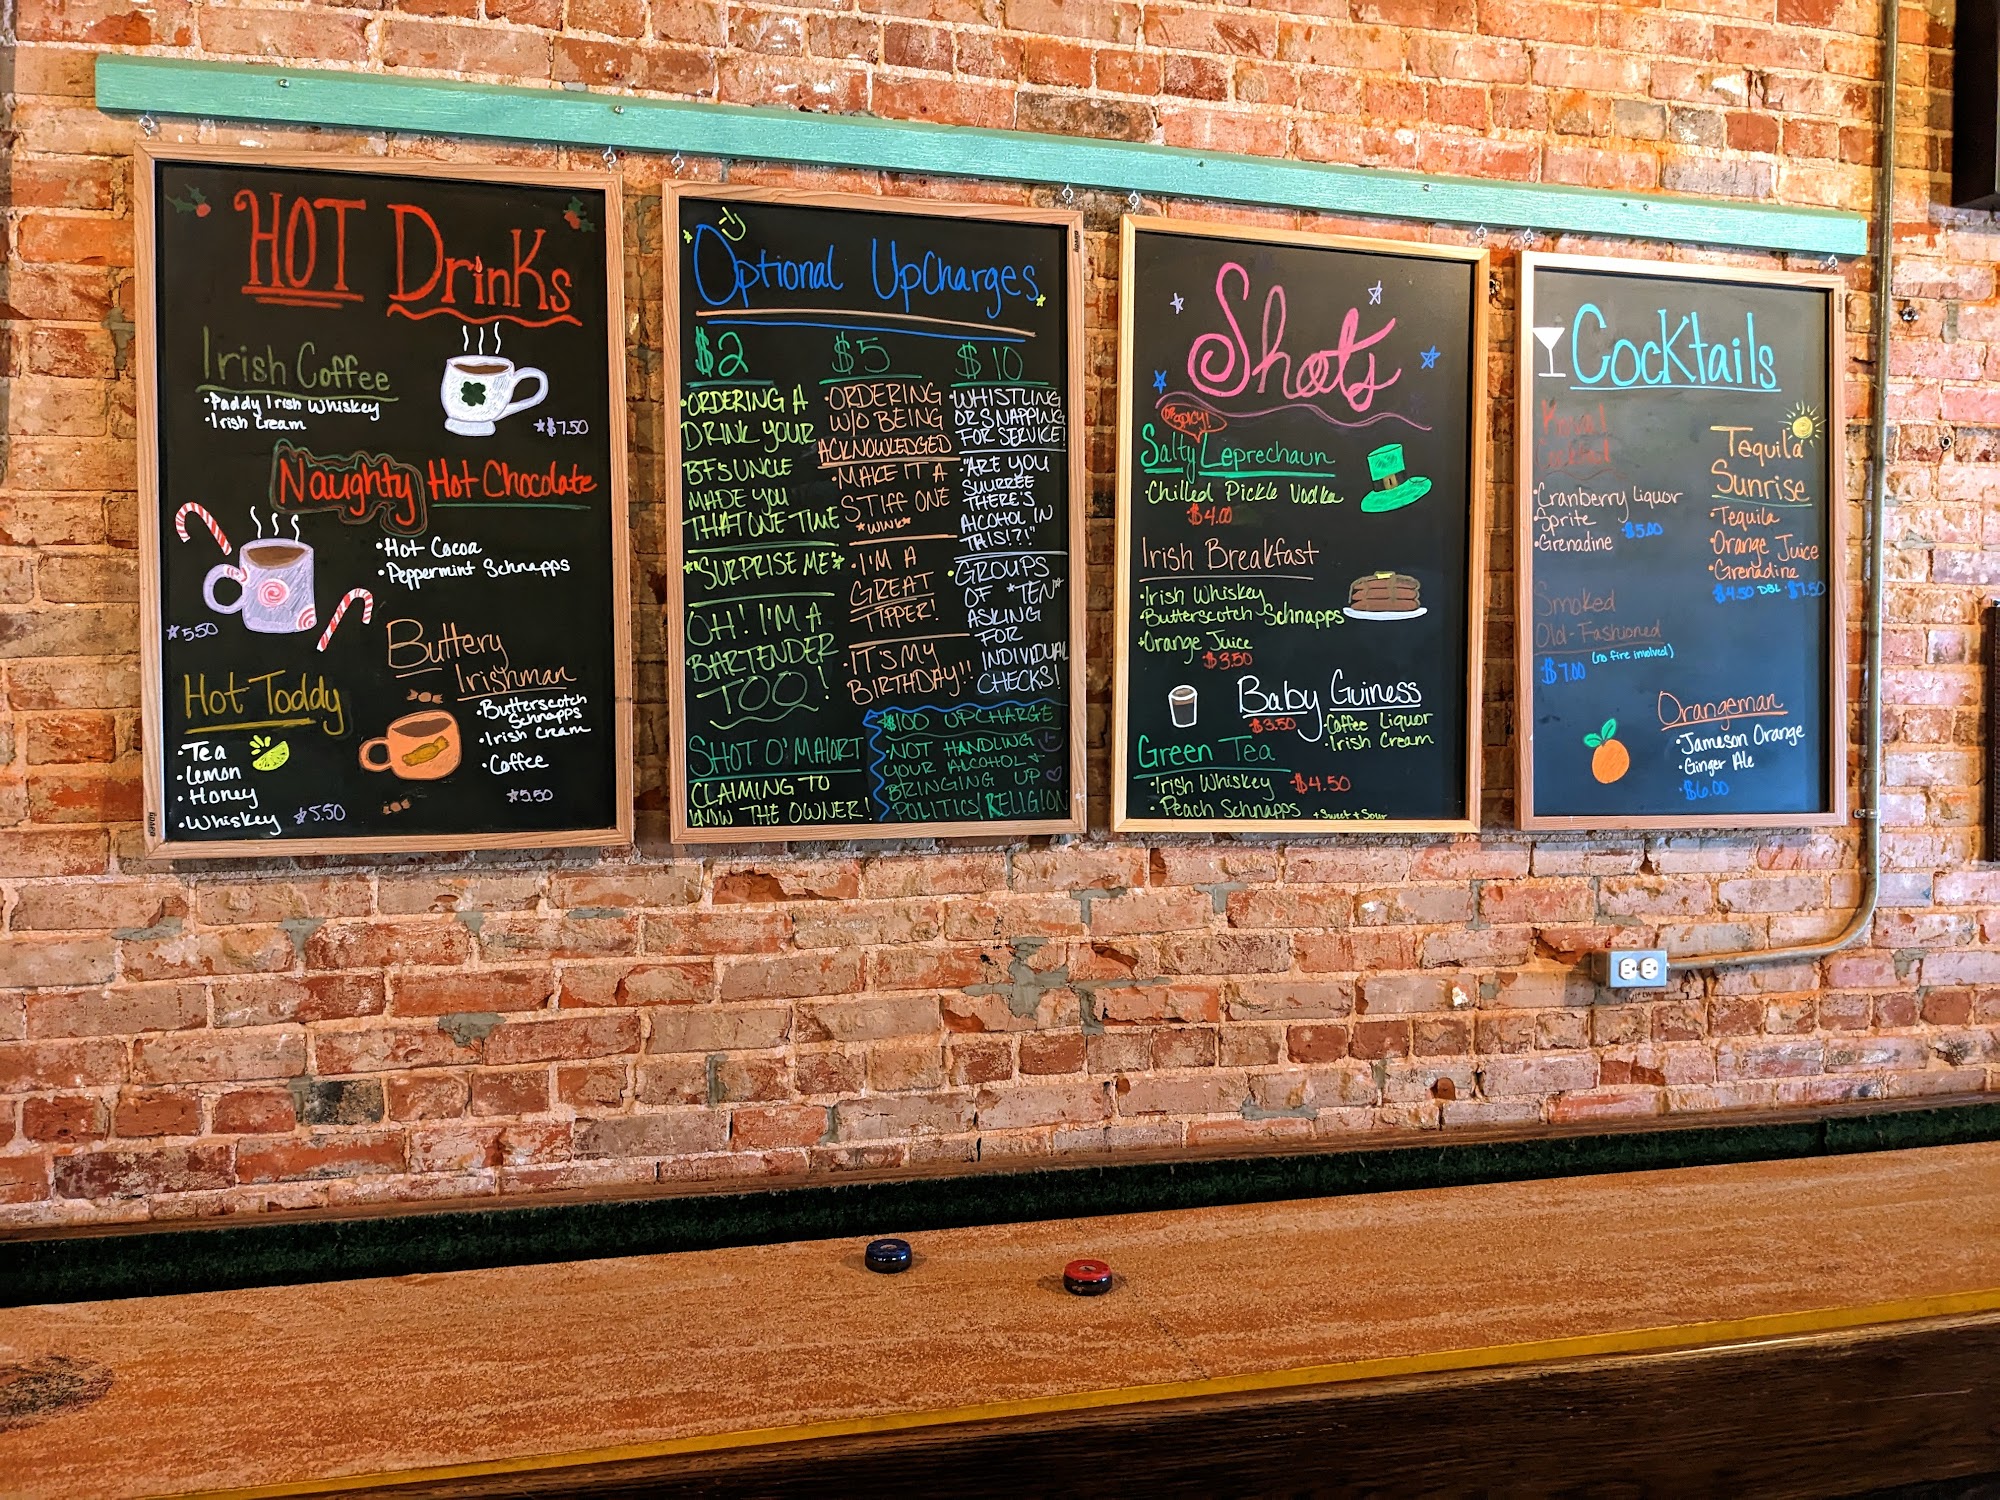 HOT Drinks
Irish Coffee
•Paddy Irish Whiskey
•Irish Cream
$7.50
Naughty Hot Chocolate
•Hot Cocoa
•Peppermint Schnapps
$5.50
Buttery
Irishman
•Butterscotch
Schnapps
•Irish Cream
•Coffee
$5.50
Hot Toddy
•Tea
•Lemon
•Honey
•Whiskey $5.50
Optional UpCharges
$2
•ORDERING A
DRINK YOUR
BF'S UNCLE
MADE YOU
THAT ONE TIME
*"SURPRISE ME"*
OH! I'M A
BARTENDER
TOO!
SHOT O' MALORT
CLAIMING TO
KNOW THE OWNER!
$5
•ORDERING
W/O BEING
ACKNOWLEDGED
•MAKE IT A
STIFF ONE
*WINK*
•I'M A
GREAT
TIPPER!
•IT'S MY
BIRTHDAY!!
$10
•WHISTLING
OR SNAPPING
FOR SERVICE!
•"ARE YOU
SUURREE
THERE'S
ALCOHOL IN
THIS!?!"
•GROUPS
OF *TEN*
ASKING
FOR
INDIVIDUAL
CHECKS!
$100 UPCHARGE
•NOT HANDLING
YOUR ALCOHOL +
BRINGING UP
POLITICS/RELIGION
Shots
SPICY!
Salty Leprechaun
•Chilled Pickle Vodka
$4.00
Irish Breakfast
•Irish Whiskey
•Butterscotch Schnapps
•Orange Juice
$3.50
Baby Guiness
$3.50
•Coffee Liquor
•Irish Cream
Green Tea
•Irish Whiskey $4.50
•Peach Schnapps
+Sweet + Sour
Cocktails
•Cranberry Liquor
•Sprite
•Grenadine $5.00
Smoked
Old-Fashioned
(no fire involved)
•$7.00
Tequila
Sunrise
•Tequila
•Orange Juice
•Grenadine
$4.50 DBL $7.50
Orangeman
•Jameson Orange
•Ginger Ale
•$6.00